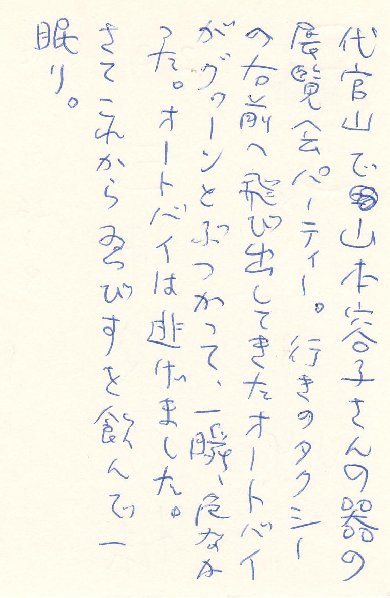 代官山で山本容子さんの器の
展覧会パーティー。行きのタクシー
の右前へ飛び出してきたオートバイ
がグゥーンとぶつかって、一瞬、危なか
った。オートバイは逃げました。
さてこれからゑびすを飲んで一
眠り。